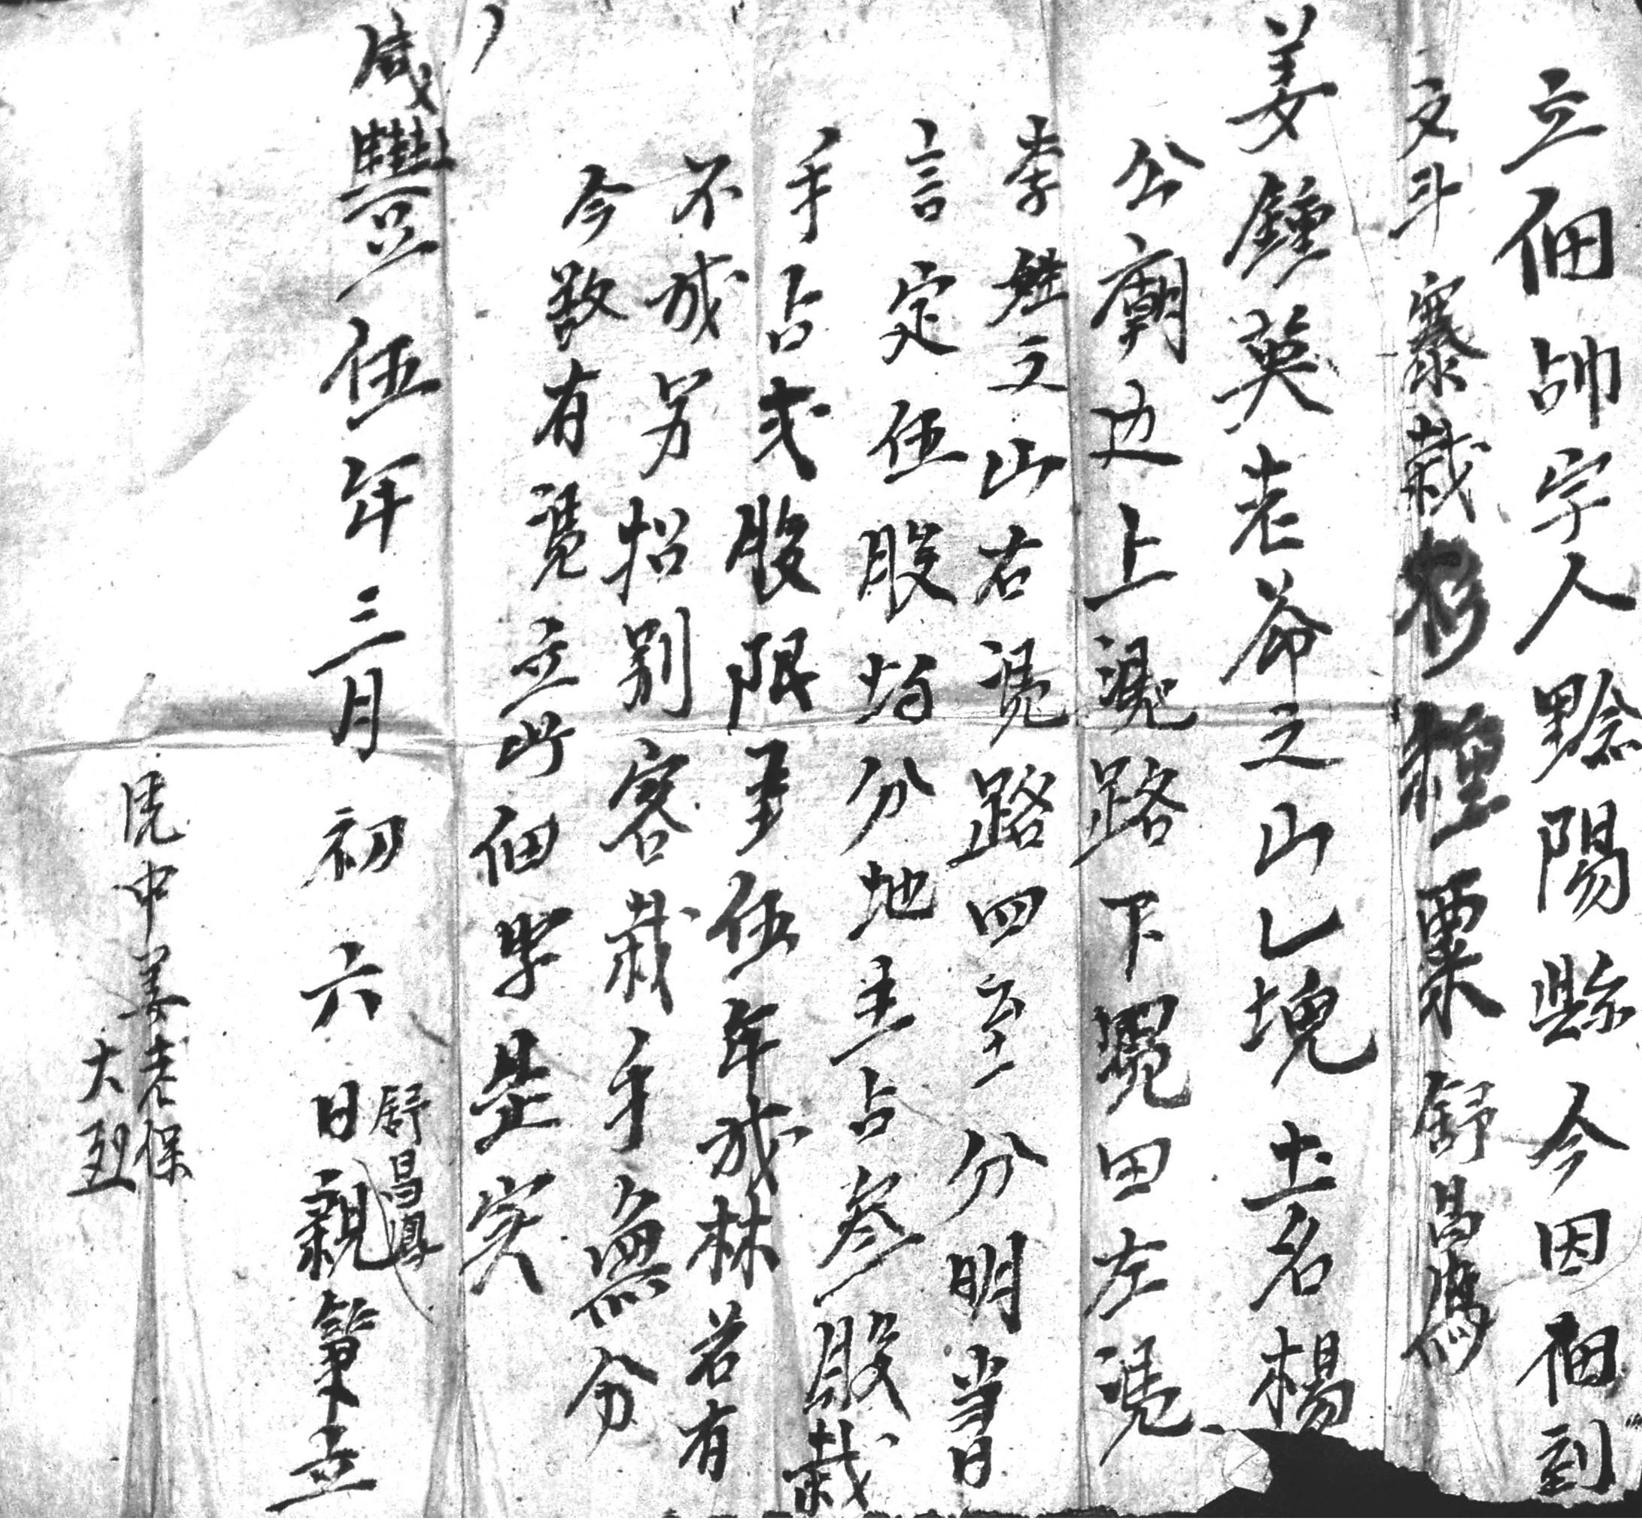 立佃帖字人黔陽縣今因佃到
文斗寨栽杉種粟舒昌
姜鍾英老爺之山乚塊土名楊
公廟边上凴路下凴田左凴
李姓之山右凴路四至分明当日
言定伍股均分地主占叁股栽
手占弍股限至伍年成林若有
不成另招别客栽手無分
今欲有凴立此佃字是实
舒昌鳳
咸豐伍年三月初六日親筆立
凴中姜老保
大烈